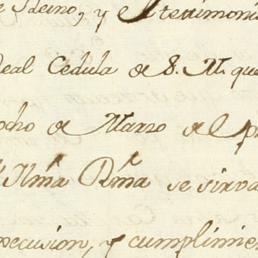 Reino, y el testimonio
Real Cédula de S. M. que
ocho de Marzo del p
Ilm̃a Rm̃a se sirva
ecucion, y cumplimie